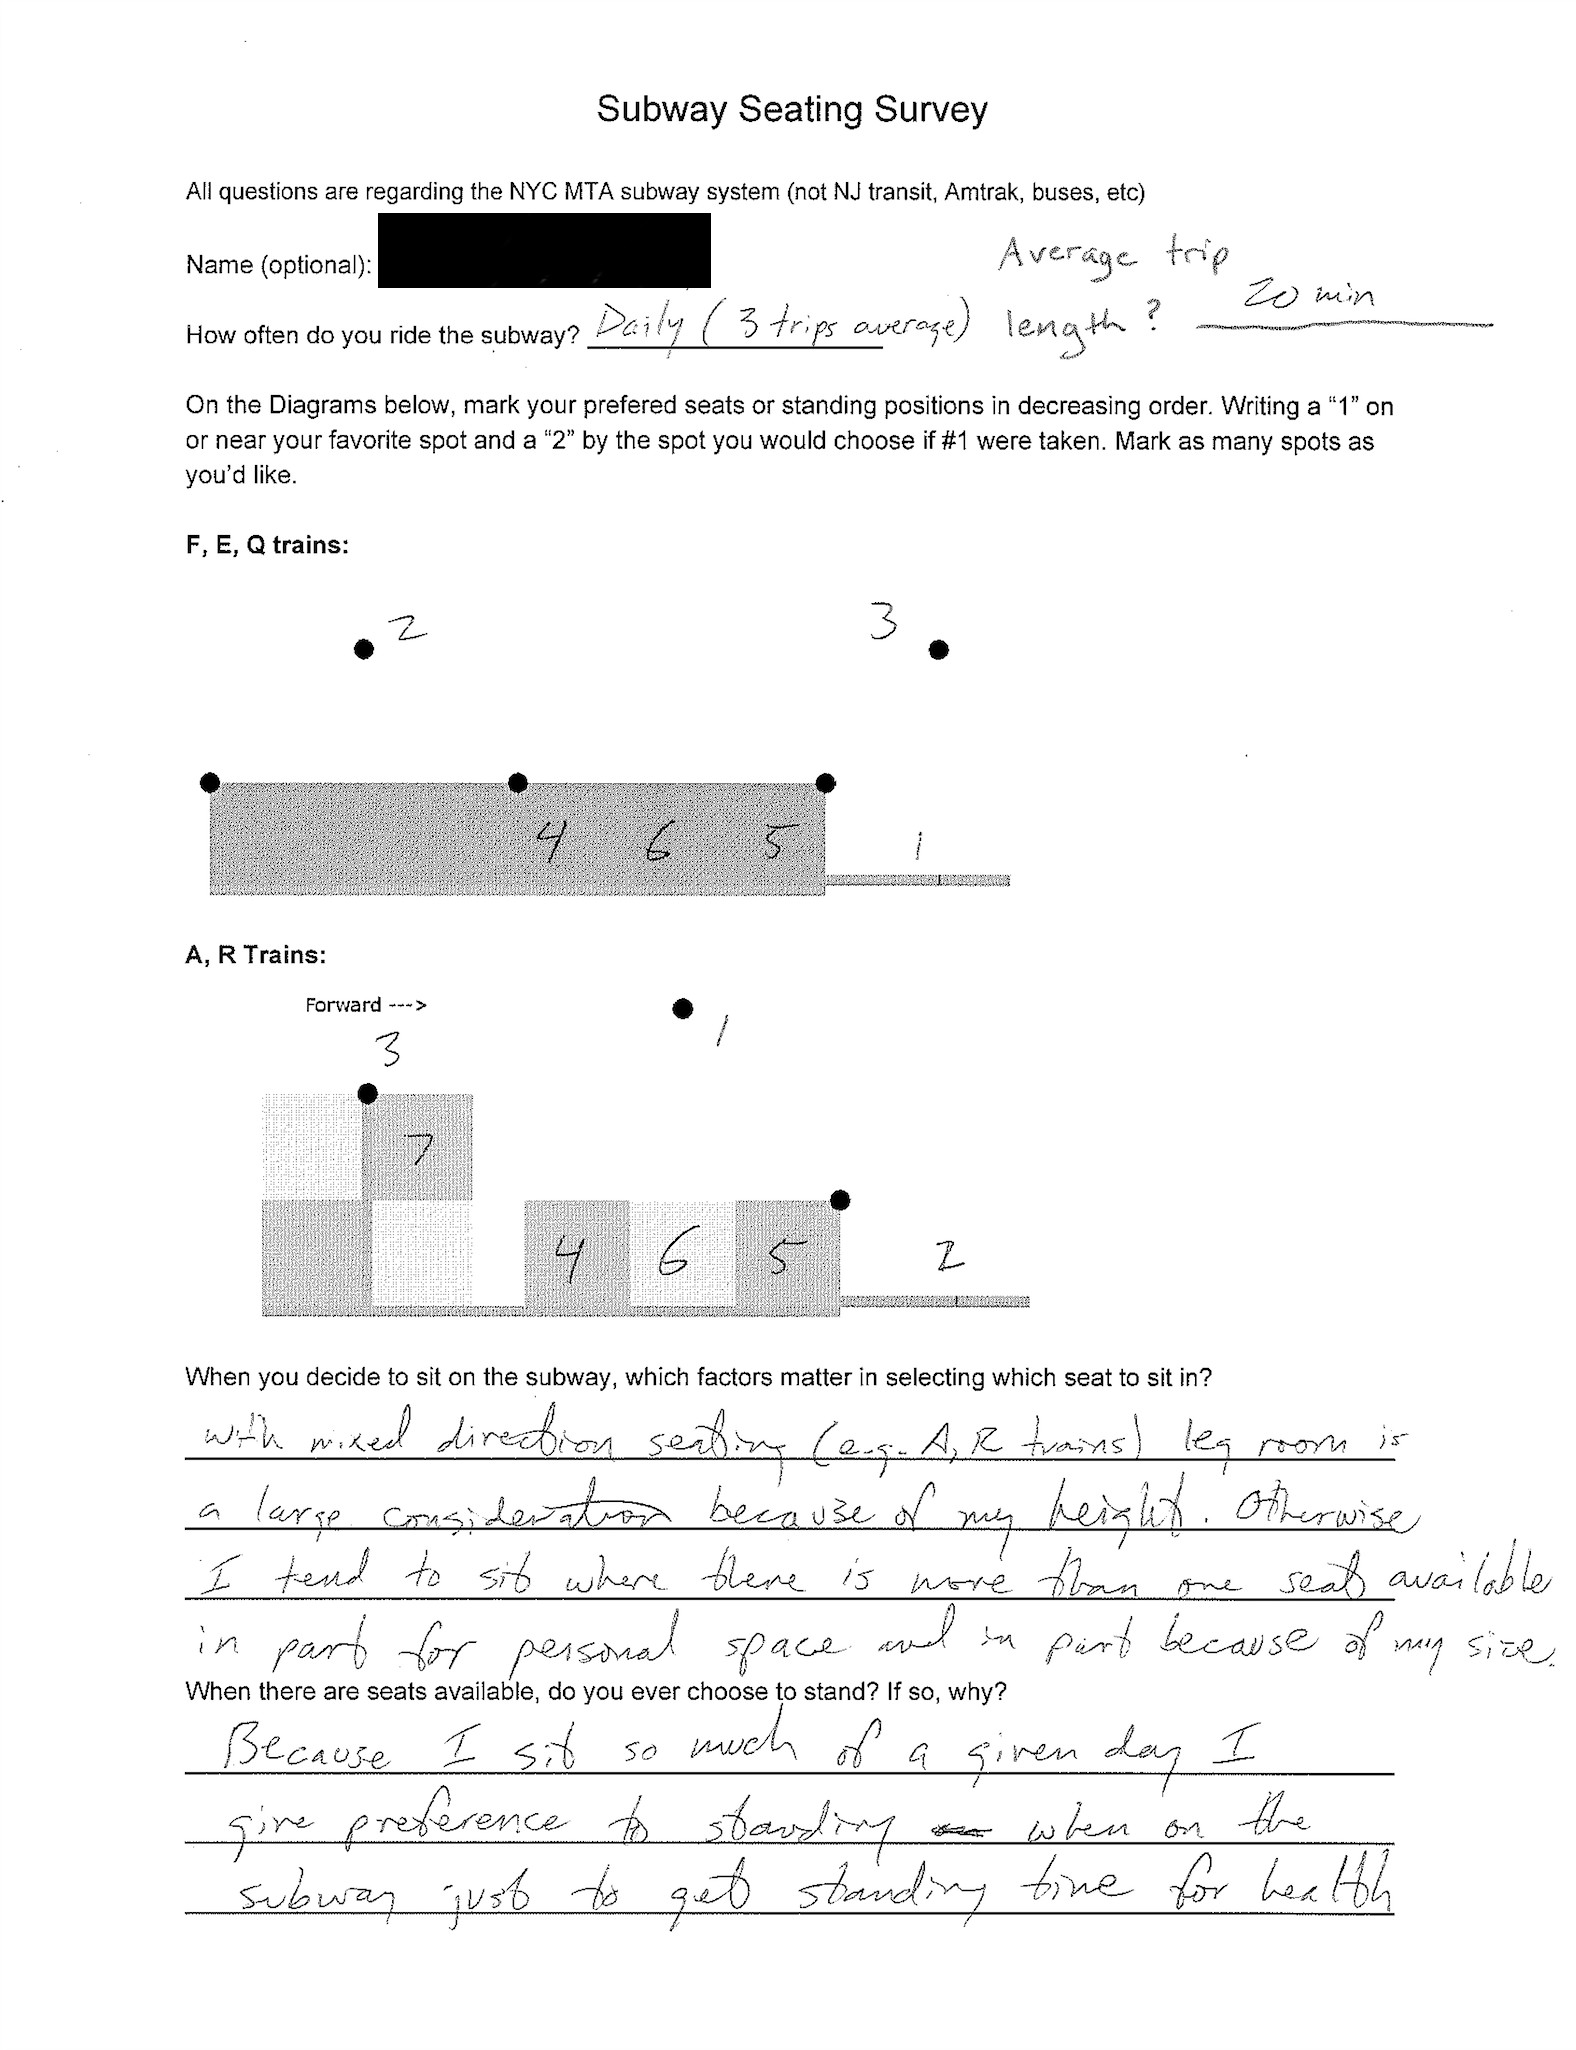 Subway Seating Survey
All questions are regarding the NYC MTA subway system (not NJ transit, Amtrak, buses, etc)
Name (optional):
Average trip
How often do you ride the subway? Daily (3 trips average) length? 20 min
On the Diagrams below, mark your prefered seats or standing positions in decreasing order. Writing a “1” on
or near your favorite spot and a “2” by the spot you would choose if #1 were taken. Mark as many spots as
you’d like.
F, E, Q trains:
2 3
4 6 5 1
A, R Trains:
Forward --->
1
3
7
4 6 5 2
When you decide to sit on the subway, which factors matter in selecting which seat to sit in?
with mixed direction seating (e.g. A, R trains) leg room is
a large consideration because of my height. Otherwise
I tend to sit where there is more than one seat available
in part for personal space and in part because of my size.
When there are seats available, do you ever choose to stand? If so, why?
Because I sit so much of a given day I
give preference to standing when on the
subway just to get standing time for health